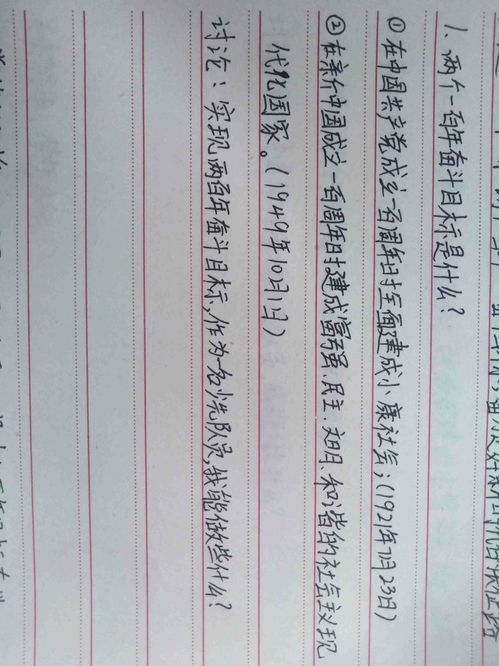 1、两个一百年奋斗目标是什么?
① 在中国共产党成立一百周年时全面建成小康社会;(1921年7月23日)
② 在新中国成立一百周年时建成富强、民主、文明、和谐的社会主义现
代化国家。(1949年10月1日)
讨论:实现两百年奋斗目标,作为一名少先队员,我能做些什么?